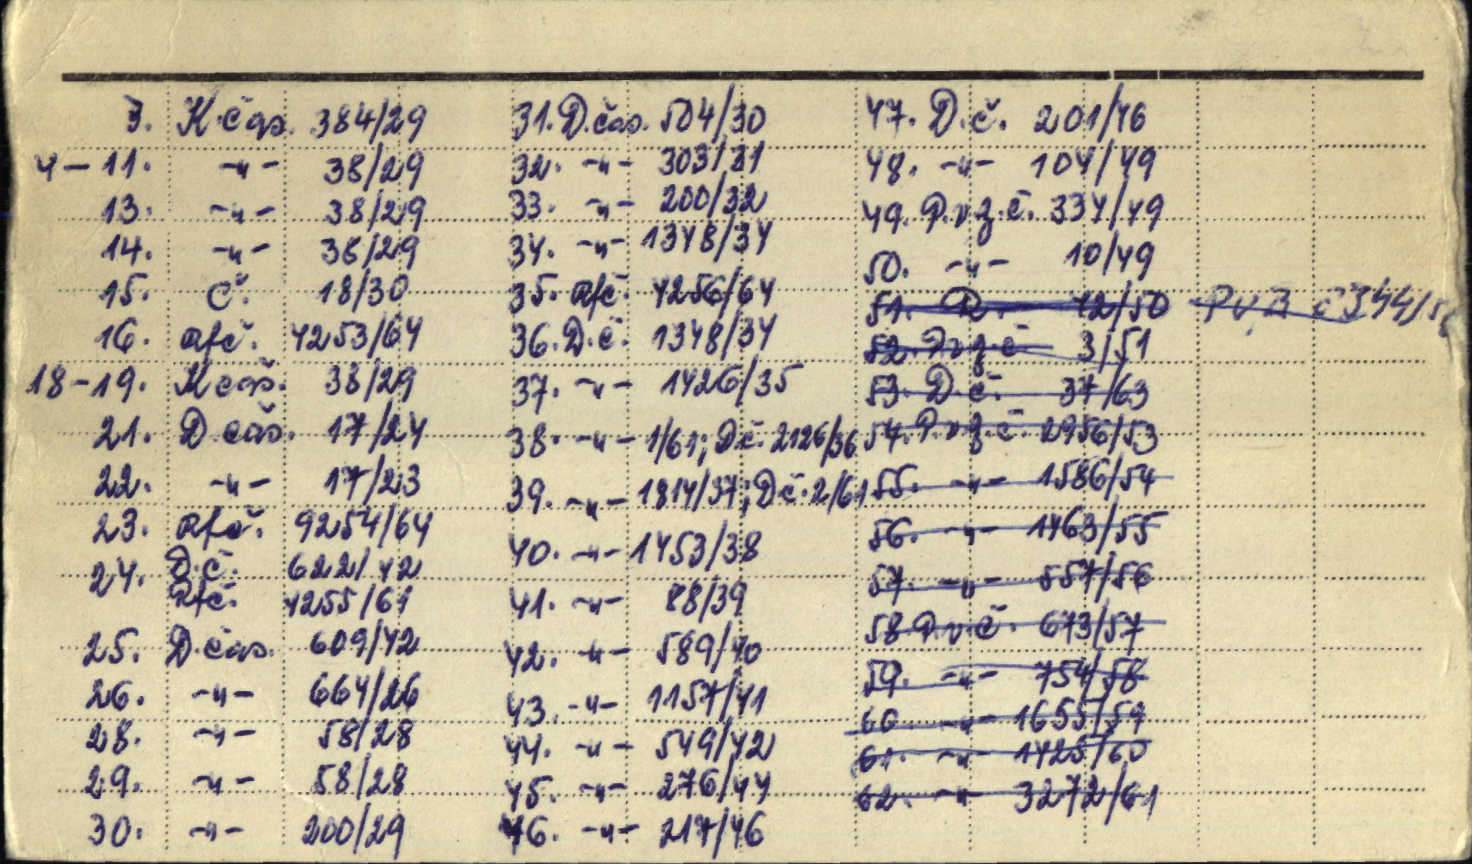 3. K.čas. 384/29
4-11. -"- 38/29
13. -"- 38/29
14. -"- 38/29
15. Č. 18/30
16. Rfč. 4253/64
18-19. K čas. 38/29
21. D čas. 17/24
22. -"- 17/23
23. Rfč. 9254/64
24. D.č. 622/42
Rfč. 4255/61
25. D.čas. 609/42
26. -"- 664/26
28. -"- 58/28
29. -"- 58/28
30. -"- 200/29
31. D.čas. 504/30
32. -"- 303/31
33. -"- 200/32
34. -"- 1348/34
35. Rfč. 4256/64
36. D.č. 1348/34
37. -"- 1426/35
38. -"- 1/61; D.č. 2126/36
39. -"- 1814/37; D č. 2/61
40. -"- 1453/38
41. -"- 88/39
42. -"- 589/40
43. -"- 1157/41
44. -"- 549/42
45. -"- 276/44
46. -"- 217/46
47. D.č. 201/46
48. -"- 104/49
49. P.v.z.č. 334/49
50. -"- 10/49
51. D. 42/50 PvB č 344/5
52. P.v.z.č 3/51
53. D.č. 37/63
54. P.v.z.č. 2956/53
55. -"- 1586/54
56. -"- 1463/55
57. -"- 557/56
58. P.v.č. 673/57
59. -"- 754/58
60 -"- 1655/59
61. -"- 1425/60
62. -"- 3272/61